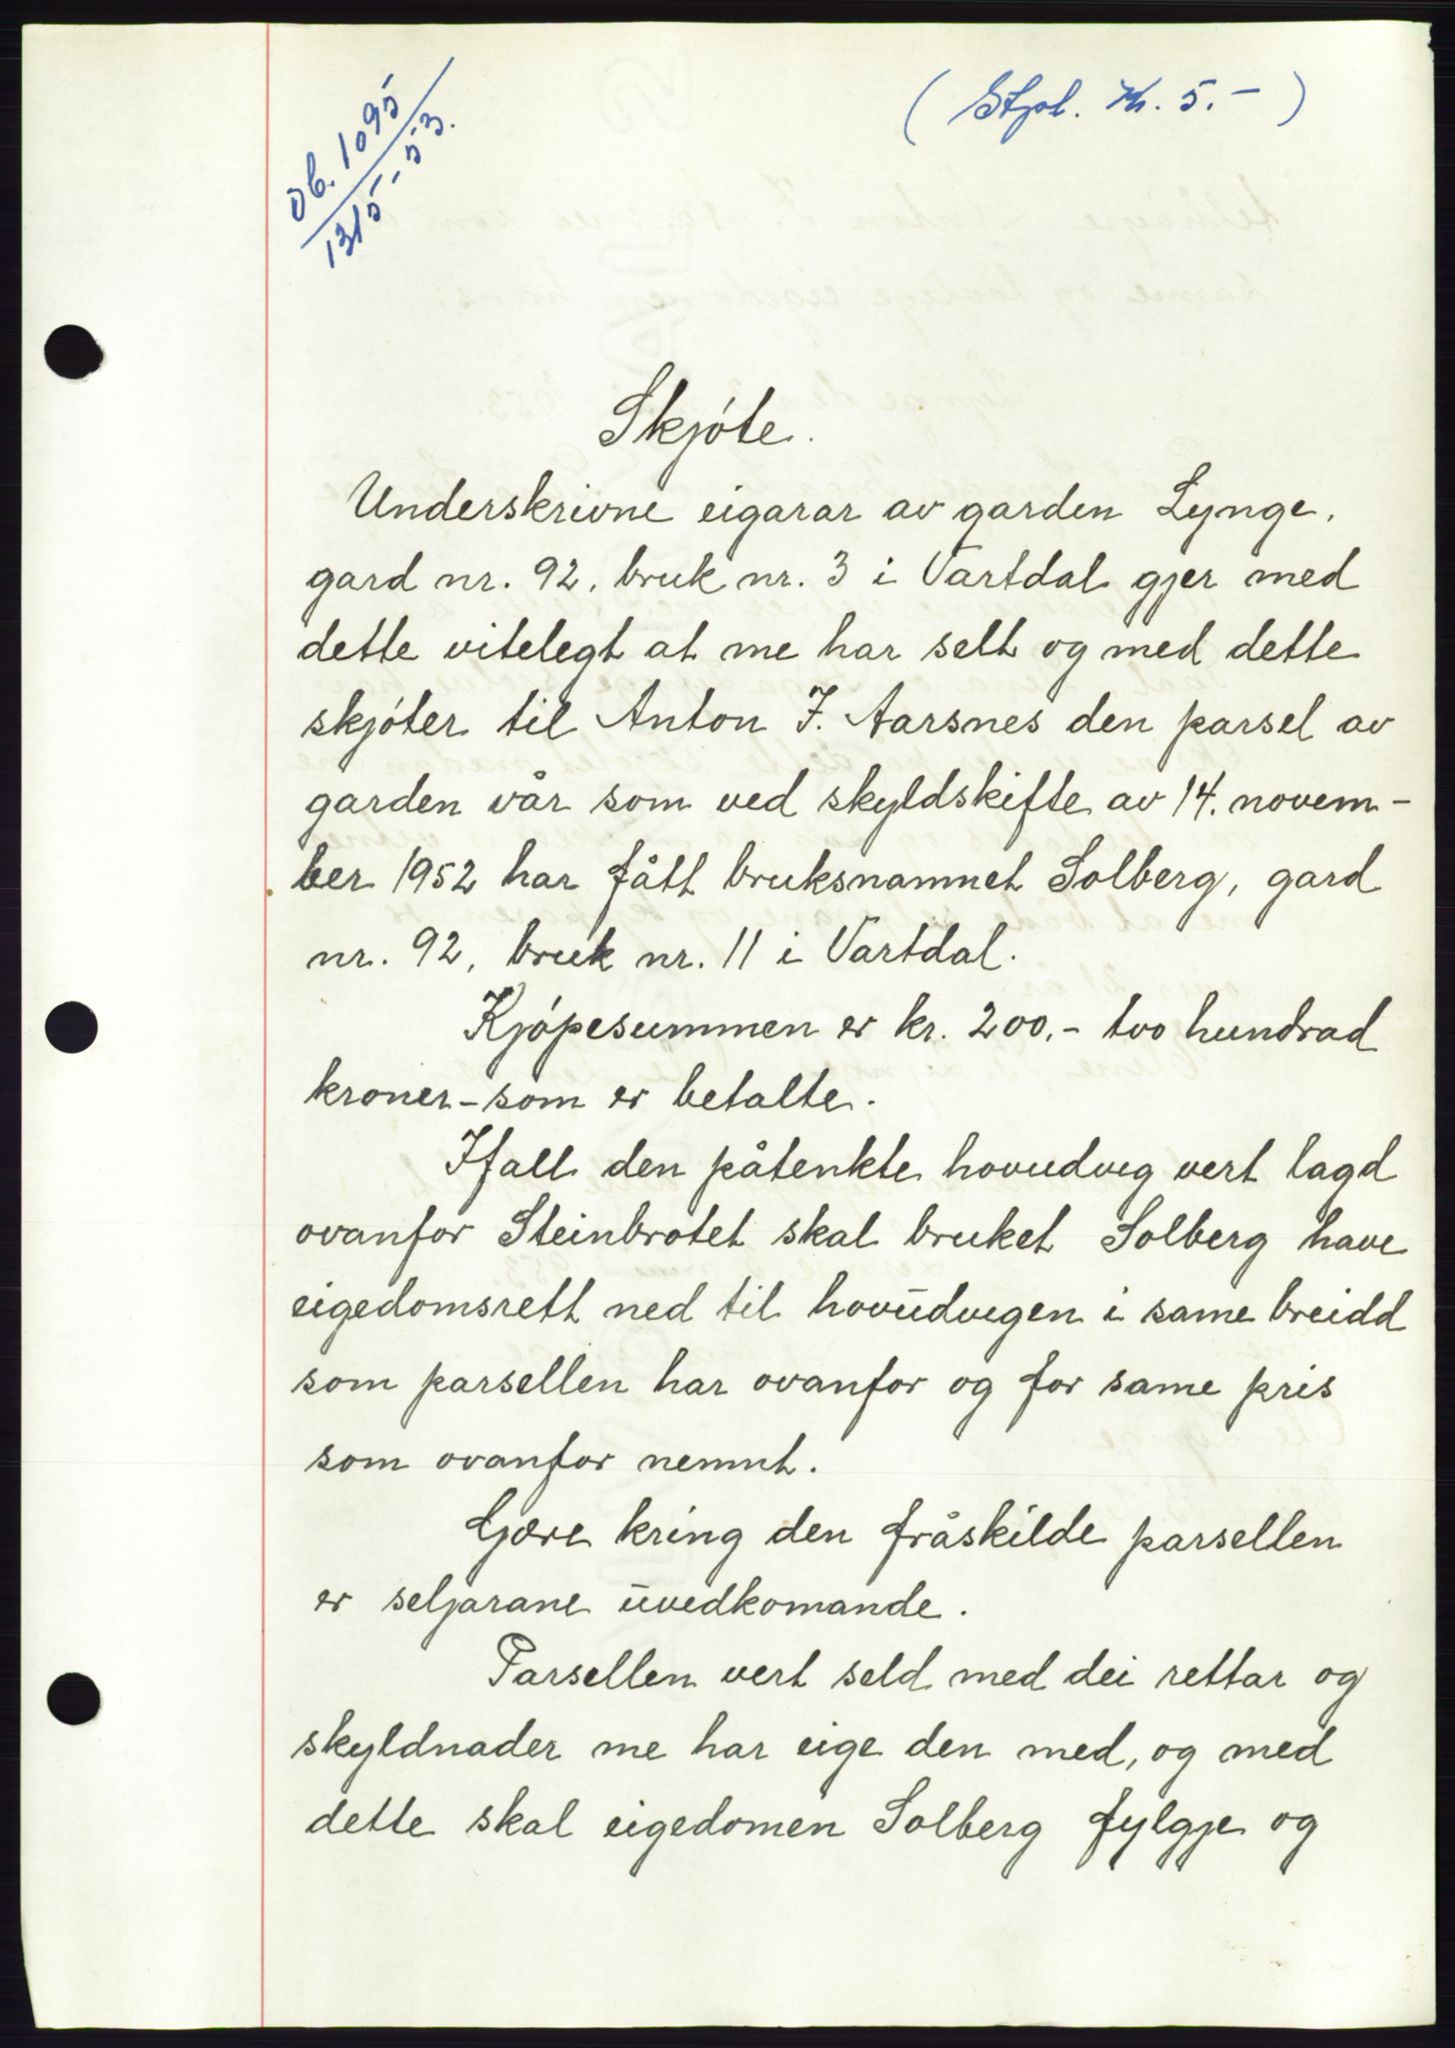 ( Stpl. Kr. 5.- )
Db. 1095
13/5-53.
Skjóte.
Underskrivne eigarar av garden Lynge,
gard nr. 92, bruk nr. 3 i Vartdal gjer med
dette vitelegt at me har selt og med dette
skjóter til Anton J. Aarsnes den parsel av
garden vår som ved skyldskifte av 14. novem-
ber 1952 har fått bruksnamnet Solberg, gard
nr. 92, bruk nr. 11 i Vartdal.
Kjópesummen er kr. 200,- tvo hundrad
kroner - som er betalte.
Ifall den påtenkte hovudveg vert lagd
ovanfor Steinbrotet skal bruket Solberg have
eigedomsrett ned til hovudvegen i same breidd
som parsellen har ovanfor og for same pris
som ovanfor nemnt.
Gjære kring den fråskilde parsellen
er seljarane uvedkomande.
Parsellen vert seld med dei rettar og
skyldnader me har eige den med, og med
dette skal eigedomen Solberg fylgje og